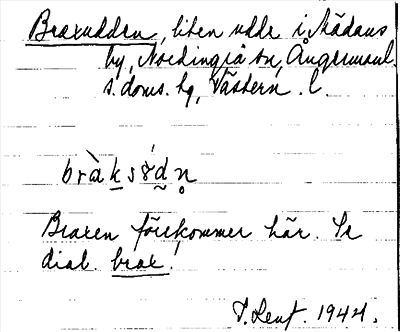 Braxudden, liten udde i Mädans
by, Nordingrå sn, Ångermanl.
s. doms. hg, Västern. l.
bràk sú̀dn̥
Braxen förekommer här. Se
dial. brax!
1944.